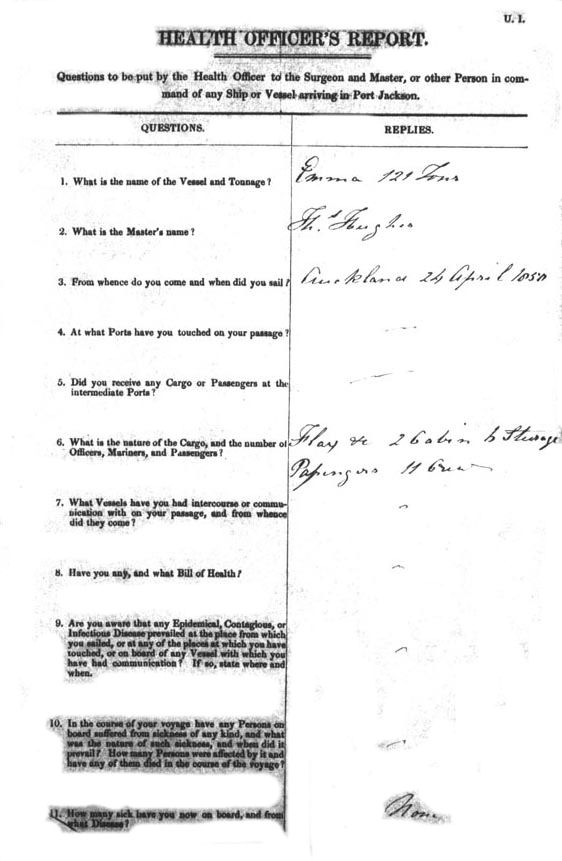 U. I.
HEALTH OFFICER'S REPORT.
Questions to be put by the Health Officer to the Surgeon and Master, or other Person in com-
mand of any Ship or Vessel arriving in Port Jackson.
QUESTIONS. REPLIES.
1. What is the name of the Vessel and Tonnage? Emma 121 Tons
2. What is the Master's name? Ths Hughes
3. From whence do you come and when did you sail? Auckland 24 April 1850
4. At what Ports have you touched on your passage?
5. Did you receive any Cargo or Passengers at the
intermediate Ports?
6. What is the nature of the Cargo, and the number of Flax &c 2 Cabin 6 Steerage
Officers, Mariners, and Passengers? Passengers 11 Crew
7. What Vessels have you had intercourse or commu-
nication with on your passage, and from whence
did they come?
8. Have you any, and what Bill of Health?
9. Are you aware that any Epidemical, Contagious, or
Infectious Disease prevailed at the place from which
you sailed, or at any of the places at which you have
touched, or on board of any Vessel with which you
have had communication? If so, state where and
when.
10. In the course of your voyage have any Persons on
board suffered from sickness of any kind, and what
was the nature of such sickness, and when did it
prevail? How many Persons were affected by it and
have any of them died in the course of the voyage?
11. How many sick have you now on board, and from None
what Disease?